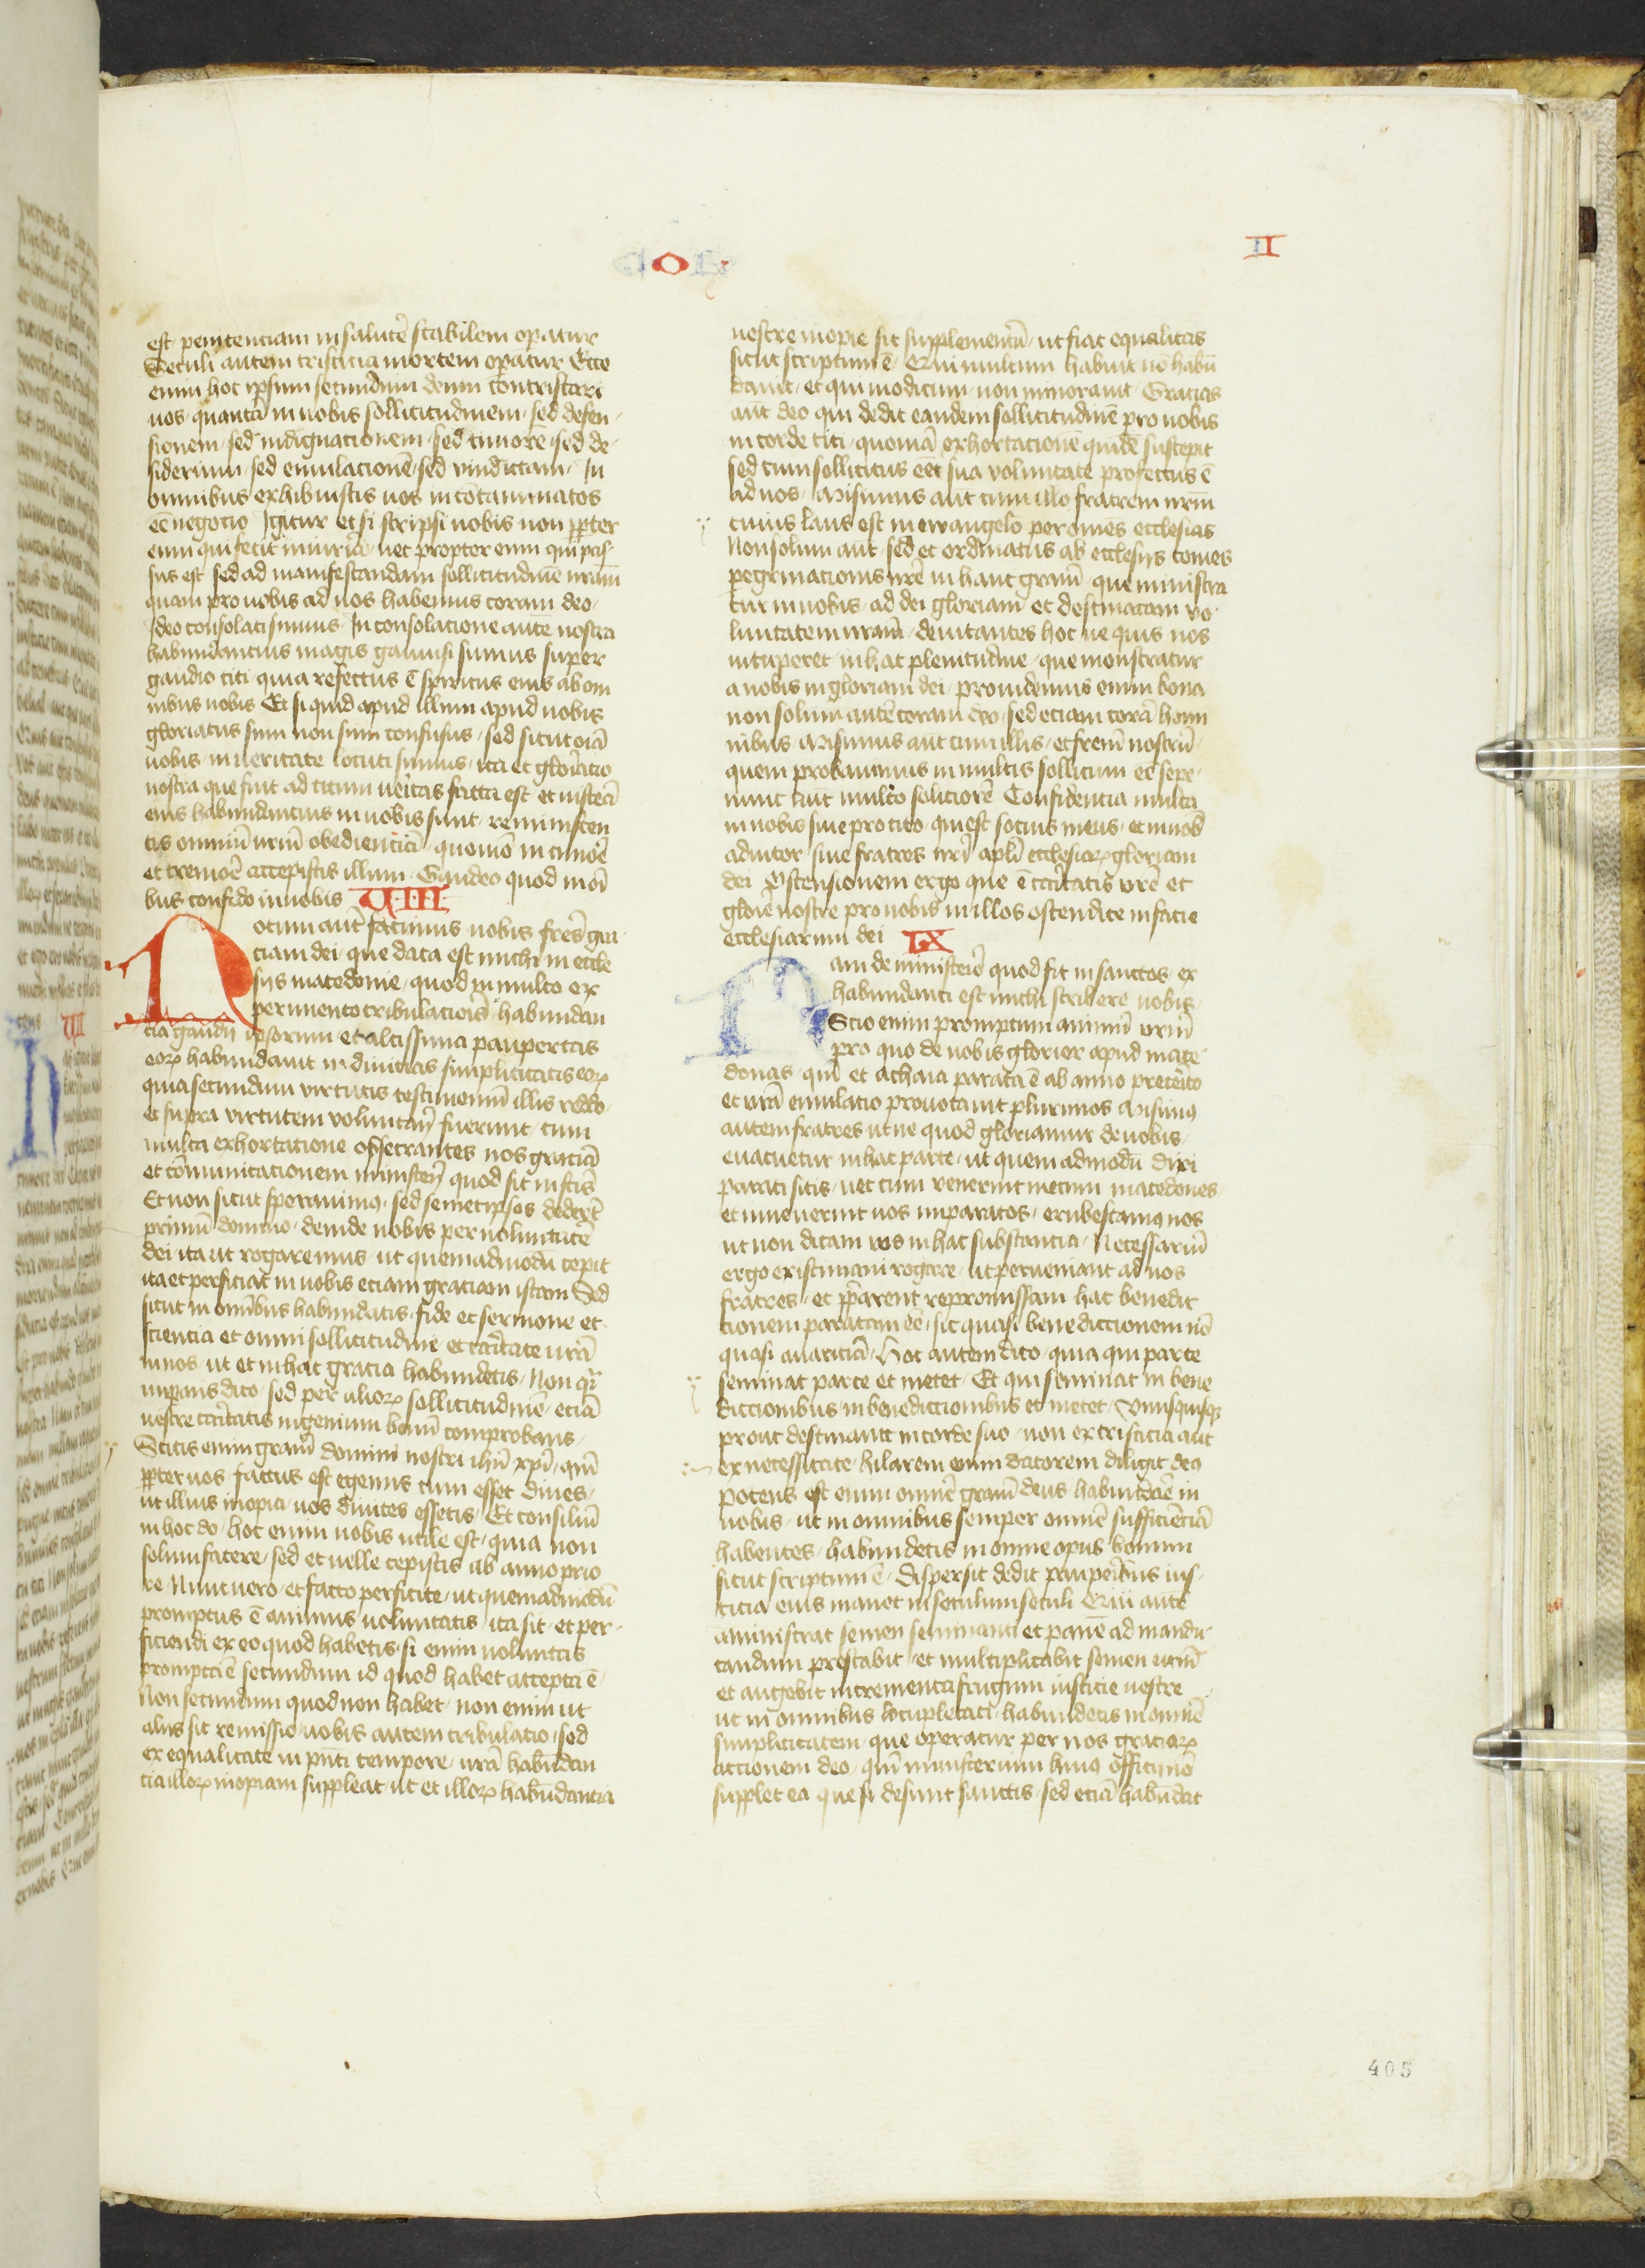 COR
II
est penitenciam in salutē stabilem opatur
Seculi autem tristicia mortem opatur Ecce
enim hoc ipsum secundum deum contristari
uos quantā in uobis sollicitudinem sed defen
sionem sed indignacionem sed timorē sed de
siderium sed emulacionē sed vindictam In
omnibus exhibuistis uos incōtaminatos
eē negocio Igitur et si scripsi uobis non ꝓpter
eum qui fecit iniuriā nec propter eum qui pas
sus est sed ad manifestandam sollicitudinē nr̄am
quam pro uobis ad uos habemus coram deo
Ideo consolati sumus In consolacione aute nostra
habundancius magis gauisi sumus super
gaudio titi quia refectus ē spiritus eius ab om
nibus uobis Et si quid apud illum apud uobis
gloriatus sum non sum confusus sed sicut oīa
uobis in ueritate locuti sumus ita et gloriatio
nostra que fuit ad titum ueritas facta est et uiscera
eius habundancius in uobis sunt reminiscen
tis omniū vr̄m obedienciā quomō in timōe
et tremoē accepistis illum Gaudeo quod in oī
bus confido in uobis VIII
Notum aut̄ facimus uobis fres grā
ciam dei que data est michi in eccle
sijs macedonie quod in multo ex
perimento tribulacionis habundan
cia gaudij ipsorum et altissima paupertas
eoꝝ habundauit in diuicias simplicitatis eoꝝ
quia secundum virtutis testimoniū illis reddo
et supra virtutem voluntarij fuerunt cum
multa exhortatione obsecrantes nos graciā
et cōmunicationem ministerij quod fit in scōs
Et non sicut sperauimꝰ sed semetipsos dederūt
primū domino deinde nobis per uoluntatē
dei ita ut rogaremus ut quemadmodū cepit
ita et perficiat in uobis eciam graciam istam Sed
sicut in omībus habundatis fide et sermone et
sciencia et omni sollicitudine et caritate vr̄a
in nos ut et in hac gracia habundetis Non qī
inpans dico sed per alioꝝ sollicitudinē eciā
uestre caritatis ingenium bonū comprobans
Scitis enim grām domini nostri ihū xp̄i qm̄
ꝓpter uos factus est egenus cum esset diues
ut illius inopia uos diuites essetis Et consiliū
in hoc do hoc enim uobis utile est quia non
solum facere sed et uelle cepistis ab anno prio
re Nunc uero et facto perficite ut quemadmodū
promptus ē animus uoluntatis ita sit et per
ficiendi ex eo quod habetis si enim uoluntas
prompta ē secundum id quod habet accepta ē
Non secundum quod non habet non enim ut
alijs sit remissio uobis autem tribulatio sed
ex equalitate in pn̄ti tempore vr̄a habundan
cia illoꝝ inopiam suppleat ut et illoꝝ habūdancia
uestre inopie sit supplementū ut fiat equalitas
sicut scriptum ē Qui multum habuit nō habū
dauit et qui modicum non minorauit Gracias
aut deo qui dedit eandem sollicitudinē pro uobis
in corde titi quoniā exhortacione quidē suscepit
sed cum sollicitus eēt sua voluntate profectus ē
ad uos Misimus aūt cum illo fratrem nr̄m
cuius laus est in ewangelo per omēs ecclesias
Non solum aūt sed et ordinatus ab ecclesijs comes
pegrinacionis nrē in hanc grām que ministra
tur in nobis ad dei gloriam et destinatam vo
luntatem nr̄am deuitantes hoc ne quis nos
uituperet in hac plenitudine que monstratur
a nobis in gloriam dei prouidemus enim bona
non solum autē coram deo sed eciam corā homi
nibus Misimus aut cum illis et frem̄ nostrū
quem probauimus in multis sollicitum eē sepe
nunc aut̄ multo solicitorē Confidencia multa
in uobis siue pro tito qui est socius meus et in uob̄
adiutor siue fratres nr̄i apl̄i ecclesiaꝝ gloriam
dei Ostensionem ergo que ē caritatis vrē et
glorie nostre pro uobis in illos ostendite in facie
ecclesiarum dei IX
Nam de ministerio quod fit in sanctos ex
habundanti est michi scribere uobis
Scio enim promptum animū vr̄m
pro quo de uobis glorior apud mace
donas qm̄ et achaia parata ē ab anno preterito
et vr̄a emulatio prouocauit plurimos Misimꝰ
autem fratres ut ne quod gloriamur de uobis
euacuetur in hac parte ut quemadmodū dixi
parati sitis nec cum venerint mecum macedones
et inuenerint uos inparatos erubescamꝰ nos
ut non dicam vos in hac substancia Necessariū
ergo existimaui rogare ut perueniant ad uos
fratres et ꝑparent repromissam hac benedic
tionem paratam eē sic quasi benedictionem nō
quasi auariciā Hoc autem dico quia qui parce
seminat parce et metet Et qui seminat in bene
dictionibus in benedictionibus et metet Vnusquisqꝫ
prout destinauit in corde suo non ex tristicia aut
ex necessitate hilarem enim datorem diligit deꝰ
potens est enim omnē grām deus habundare in
uobis ut in omnibus semper omnē sufficienciā
habentes habundetis in omne opus bonum
sicut scriptum ē Dispersit dedit pauperibus ius
ticia eius manet in seculum seculi Qui autē
aministrat semen seminanti et panē ad mandu
candum prestabit et multiplicabit semen vr̄m
et augebit incrementa frugum iusticie uestre
ut in omnibus locupletati habundetis in omnē
simplicitatem que operatur per nos graciaꝝ
actionem deo qm̄ ministerium huiꝰ officij nō
supplet ea que desunt sanctis sed eciā habūdat
405